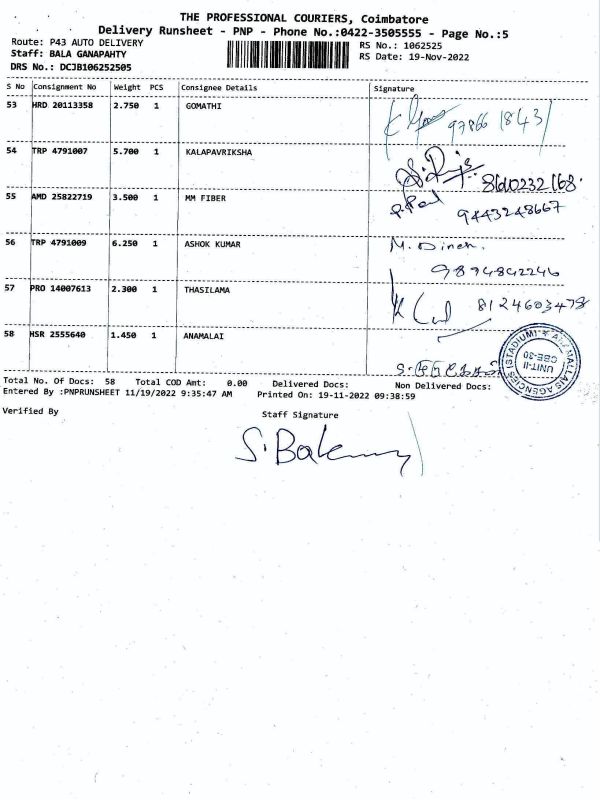 THE PROFESSIONAL COURIERS, Coimbatore
Delivery Runsheet - PNP - Phone No.:0422-3505555 - Page No.:5
Route: P43 AUTO DELIVERY
RS No.: 1062525
Staff: BALA GANAPAHTY
RS Date: 19-Nov-2022
DRS No.: DCJB106252505
S No Consignment No Weight PCS Consignee Details Signature
53 HRD 20113358 2.750 1 GOMATHI
97866 18431
54 TRP 4791007 5.700 1 KALAPAVRIKSHA
8610232168.
55 AMD 25822719 3.500 1 MM FIBER
9443248667
56 TRP 4791009 6.250 1 ASHOK KUMAR M. Dinesh.
9894842246
57 PRO 14007613 2.300 1 THASILAMA
8124603478
58 HSR 2555640 1.450 1 ANAMALAI
UNIT-II
CBE-30
Total No. Of Docs: 58 Total COD Amt: 0.00 Delivered Docs: Non Delivered Docs:
Entered By :PNPRUNSHEET 11/19/2022 9:35:47 AM Printed On: 19-11-2022 09:38:59
Verified By Staff Signature